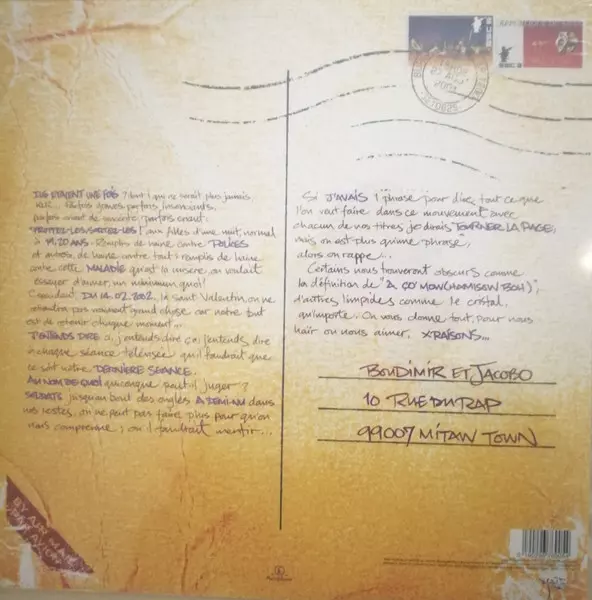 ILS ETAIENT UNE FOIS ? dont 1 qui ne serait plus jamais
parfois graves parfois insouciants,
parfois criant de parfois criant
"PROFITEZ-LES/SORTEZ-LES" aux Alles d'une nuit, normal
à 19.20 ANS. Remplis de haine contre POLICES
et autose, de haine contre tout : remplis de haine
contre cette MALADIE qu'est la misère, on voulait
essayer d'aimer, un minimum quoi !
Cependant DU 14.02.2002, la saint Valentin, on ne
retiendra pas vraiment grand chose car notre but
est de retenir chaque moment...
J'ENTENDS DIRE a, j'entends dire ça, j'entends dire
à chaque séance télévisée qu'il faudrait que
ce soit notre DERNIERE SEANCE.
AU NOM DE QUOI quiconque peut-il juger ?
SOLDATS jusqu'au bout des ongles A DEMI-NU dans
nos textes, on ne peut pas faire plus pour qu'on
nous comprenne ; ou il faudrait mentir...
Si J'AVAIS 1 phrase pour dire, tout ce que
l'on veut faire dans ce mouvement avec
chacun de nos titres je dirais TOURNER LA PAGE,
mais on est plus qu'une phrase,
alors on rappe...
Certains nous trouveront obscurs comme
la définition de
d'autres limpides comme le cristal,
qu'importe. On vous donne tout, pour nous
haïr ou nous aimer, X RAISONS...
BOUDIMIR ET JACOBO
10 RUE DU RAP
99007 MITAW TOWN
BY AIR MAIL
PAR AVION